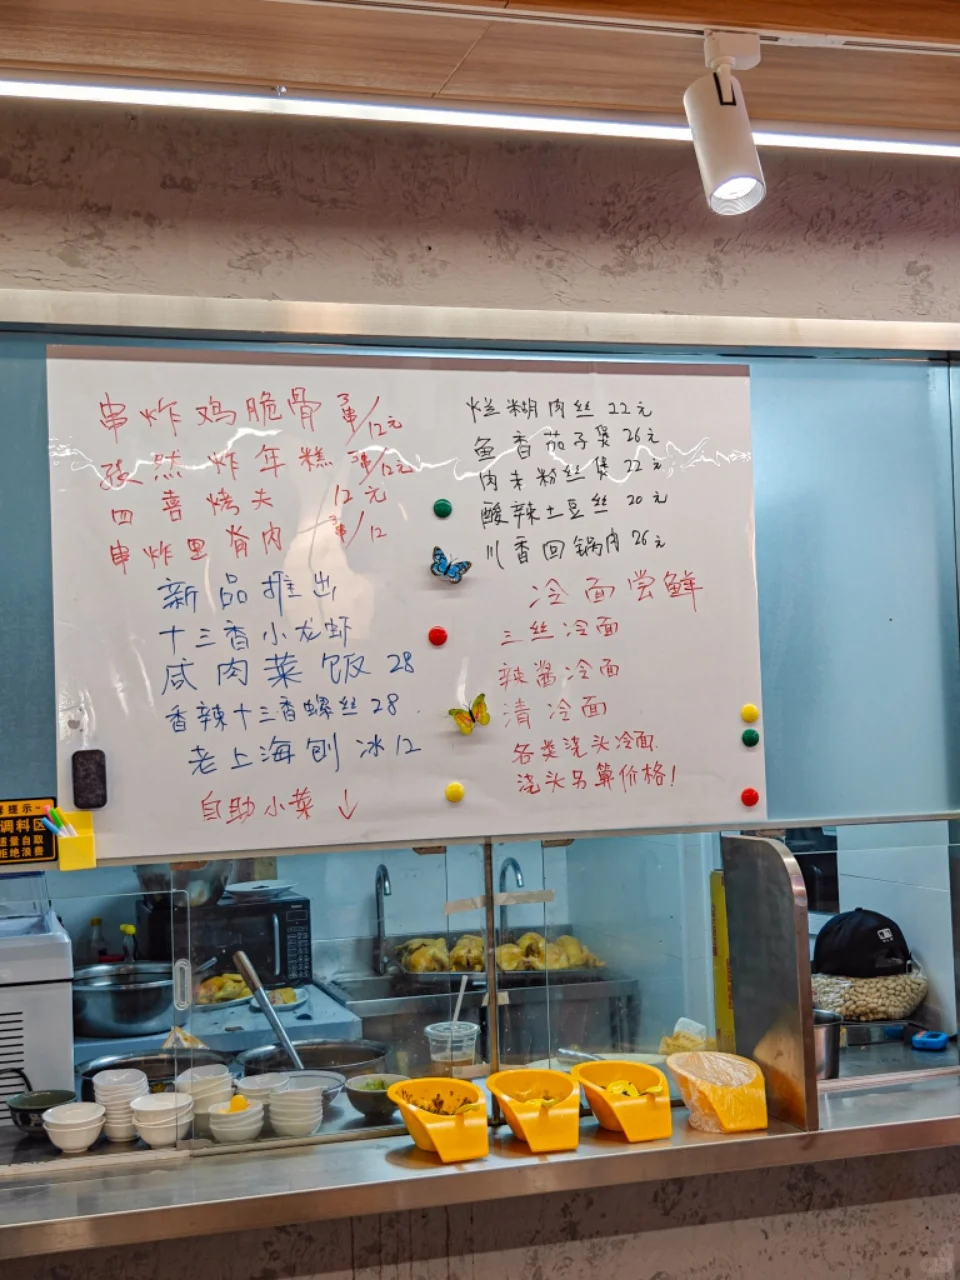 串炸鸡脆骨 3串/12元
孜然炸年糕 3串/12元
四喜烤夫 12元
串炸里脊肉 3串/12
新品推出
十三香小龙虾
咸肉菜饭 28
香辣十三香螺丝 28
老上海刨冰 12
自助小菜 ↓
烂糊肉丝 22元
鱼香茄子煲 26元
肉末粉丝煲 22元
酸辣土豆丝 20元
川香回锅肉 26元
冷面尝鲜
三丝冷面
辣酱冷面
清冷面
各类浇头冷面.
浇头另算价格!
提示~
调料区
适量自取
拒绝浪费